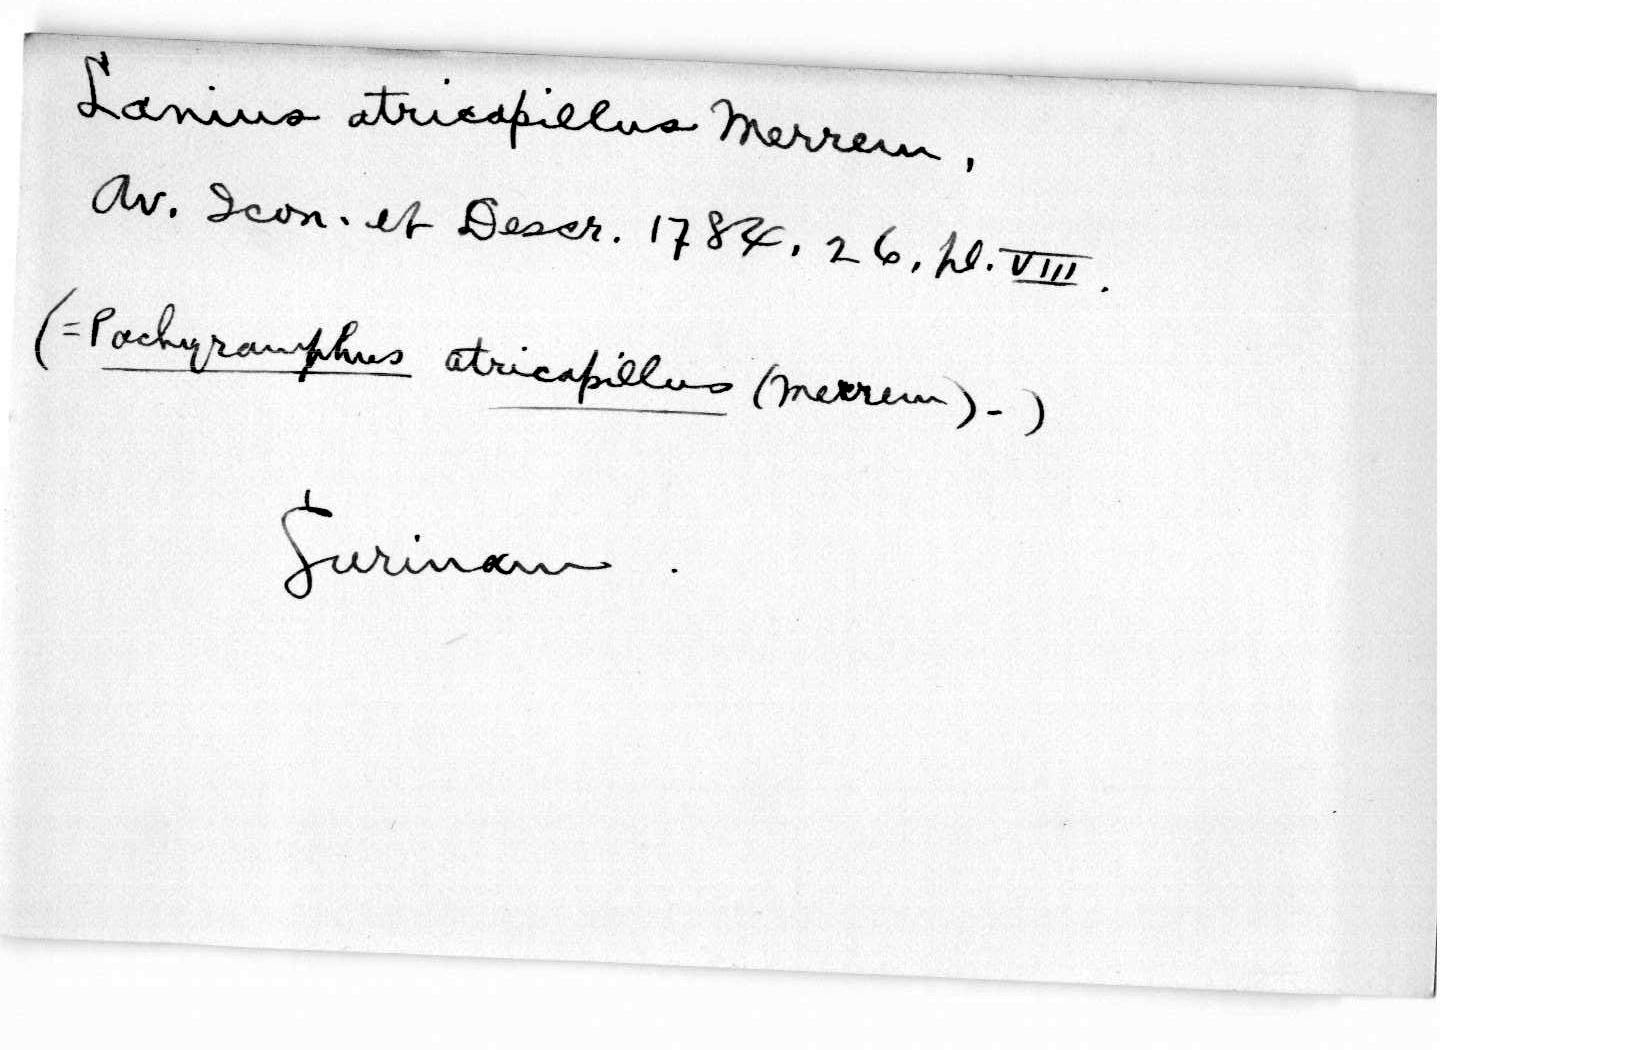 Lanius atricapillus Merrem,
Av. Icon. et Descr. 1784, 26, pl. VIII.
(=Pachyramphus atricapillus (Merrem)-)
Surinam.